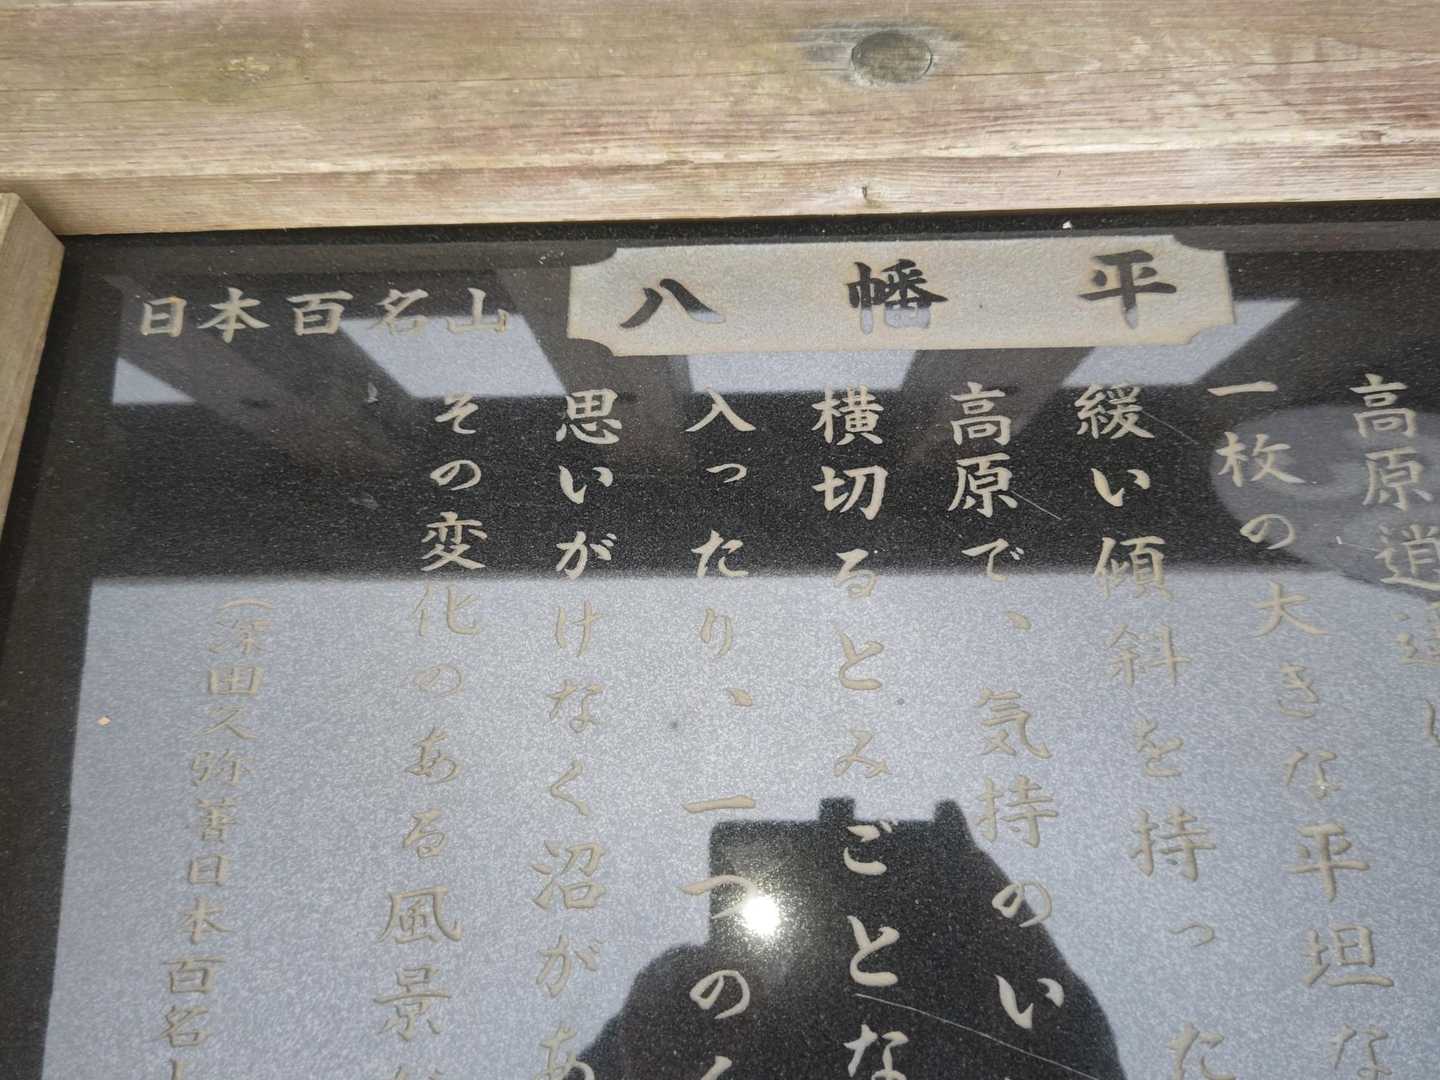 日本百名山 八幡平
高原逍遥
一枚の大きな平坦な
緩い傾斜を持った
高原で、気持のい
横切るとみごとな
入ったり、一つの
思いがけなく沼があ
その変化のある風景
(深田久弥著日本百名